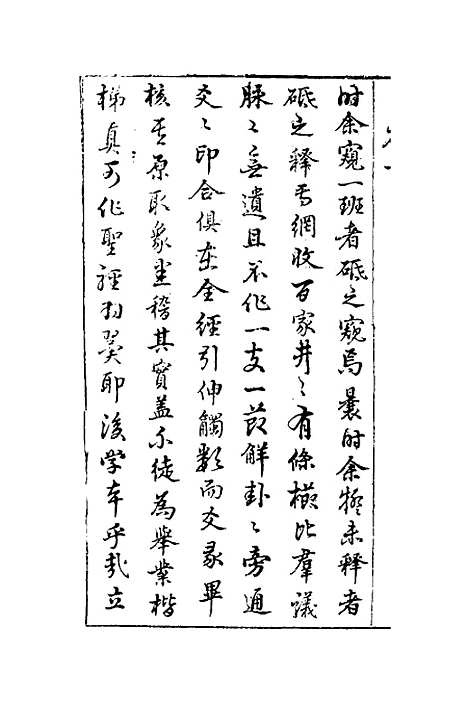 時余窺一班者砥之窺焉曩時余擬未釋者
砥之釋焉網收百家井〻有條橫比羣議
脉〻無遺且不作一支一莭解卦〻旁通
爻〻印合俱在全經引伸觸類而爻彖畢
核其原取象悉稽其實蓋不徒為舉業楷
梯真可作聖經羽翼耶後学本乎彖立